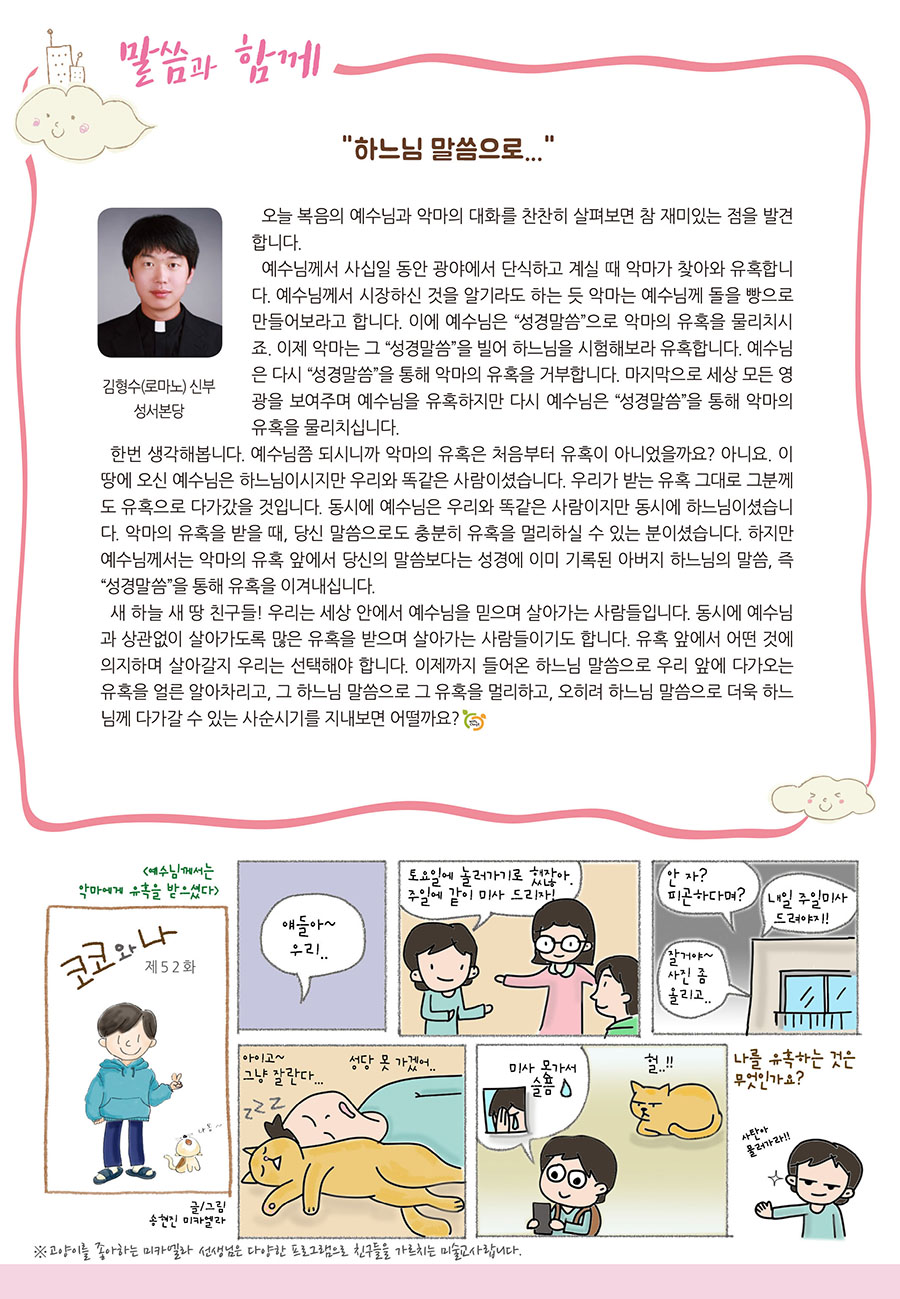 말씀과 함께
"하느님 말씀으로..."
오늘 복음의 예수님과 악마의 대화를 찬찬히 살펴보면 참 재미있는 점을 발견
합니다.
예수님께서 사십일 동안 광야에서 단식하고 계실 때 악마가 찾아와 유혹합니
다. 예수님께서 시장하신 것을 알기라도 하는 듯 악마는 예수님께 돌을 빵으로
만들어보라고 합니다. 이에 예수님은 “성경말씀”으로 악마의 유혹을 물리치시
죠. 이제 악마는 그 “성경말씀”을 빌어 하느님을 시험해보라 유혹합니다. 예수님
은 다시 “성경말씀”을 통해 악마의 유혹을 거부합니다. 마지막으로 세상 모든 영
광을 보여주며 예수님을 유혹하지만 다시 예수님은 “성경말씀”을 통해 악마의
유혹을 물리치십니다.
김형수(로마노) 신부
성서본당
한번 생각해봅니다. 예수님쯤 되시니까 악마의 유혹은 처음부터 유혹이 아니었을까요? 아니요. 이
땅에 오신 예수님은 하느님이시지만 우리와 똑같은 사람이셨습니다. 우리가 받는 유혹 그대로 그분께
도 유혹으로 다가갔을 것입니다. 동시에 예수님은 우리와 똑같은 사람이지만 동시에 하느님이셨습니
다. 악마의 유혹을 받을 때, 당신 말씀으로도 충분히 유혹을 멀리하실 수 있는 분이셨습니다. 하지만
예수님께서는 악마의 유혹 앞에서 당신의 말씀보다는 성경에 이미 기록된 아버지 하느님의 말씀, 즉
“성경말씀”을 통해 유혹을 이겨내십니다.
새 하늘 새 땅 친구들! 우리는 세상 안에서 예수님을 믿으며 살아가는 사람들입니다. 동시에 예수님
과 상관없이 살아가도록 많은 유혹을 받으며 살아가는 사람들이기도 합니다. 유혹 앞에서 어떤 것에
의지하며 살아갈지 우리는 선택해야 합니다. 이제까지 들어온 하느님 말씀으로 우리 앞에 다가오는
유혹을 얼른 알아차리고, 그 하느님 말씀으로 그 유혹을 멀리하고, 오히려 하느님 말씀으로 더욱 하느
님께 다가갈 수 있는 사순시기를 지내보면 어떨까요?
<예수님께서는
악마에게 유혹을 받으셨다>
코코와 나
제52화
나는~
글/그림
송현진 미카엘라
얘들아~
우리!..
토요일에 놀러가기로 했잖아.
주일에 같이 미사 드리자!
안 자?
피곤하다며?
내일 주일미사
드려야지!
잘거야~
사진 좀
올리고..
아이고~
그냥 잘란다...
성당 못 가겠어..
zzz
미사 못가서
슬픔
헐..!!
나를 유혹하는 것은
무엇인가요?
사탄아
물러가라!!
※고양이를 좋아하는 미카엘라 선생님은 다양한 프로그램으로 친구들을 가르치는 미술교사랍니다.